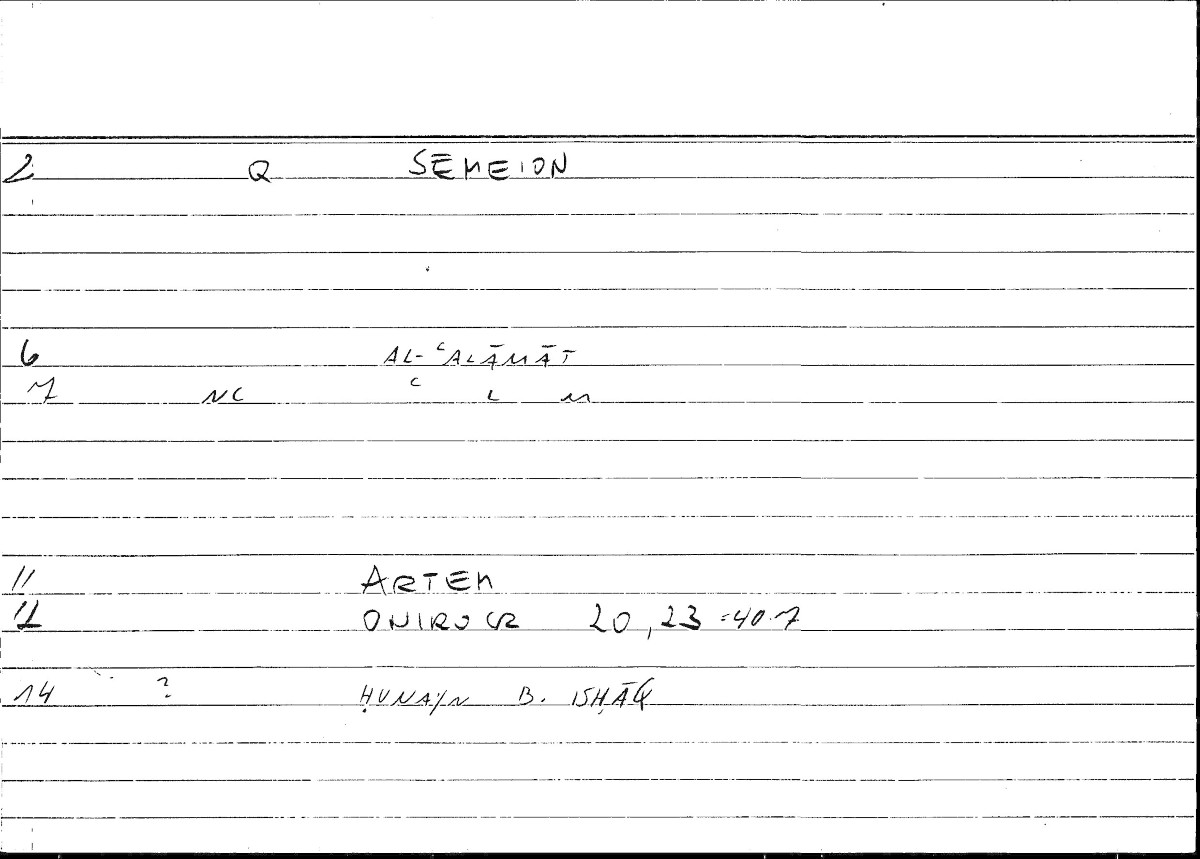 2 Q SEMEION
6 AL-ʿALĀMĀT
7 NC ʿ L M
11 ARTEM
12 ONIROCR 20,23 = 40.7
14 ? ḤUNAYN B. ISḤĀQ